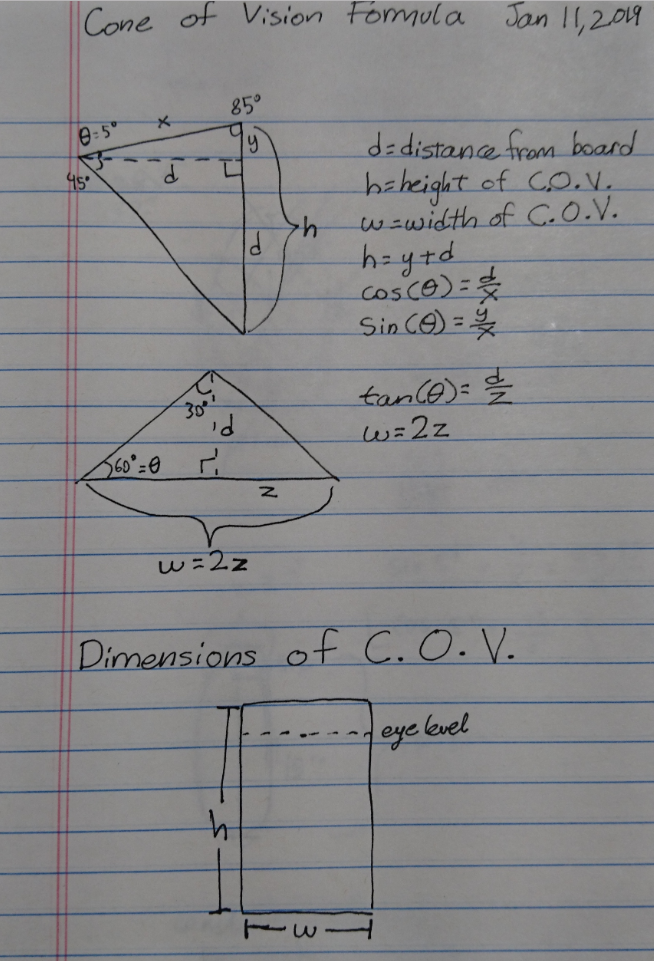 Cone of Vision Formula Jan 11, 2019
85°
θ=5° x
y
d=distance from board
45° d
h=height of C.O.V.
w=width of C.O.V.
h
d
h=y+d
cos(θ)=d/x
sin(θ)=y/x
tan(θ)=d/z
30° d
w=2z
60°=θ
z
w=2z
Dimensions of C.O.V.
eye level
h
w